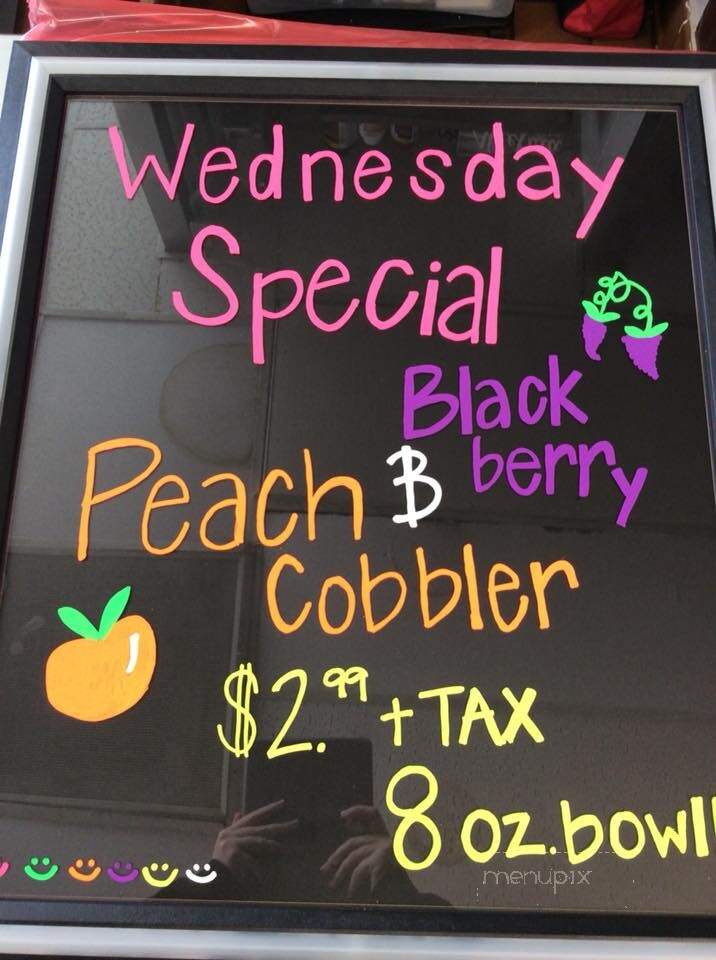 Wednesday
Special
Black
berry
Peach &
Cobbler
$2.99 + TAX
8 oz. bowl
menupix